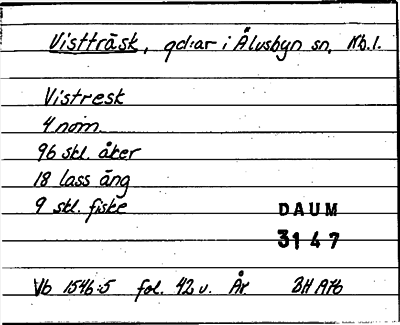 Vistträsk, gd:ar i Älvsbyn sn, Nb.l.
Vistresk
4 nom.
96 skl. åker
18 lass äng
9 skl. fiske
DAUM
3147
Vb 1546:5 fol. 42 v. År BH A76